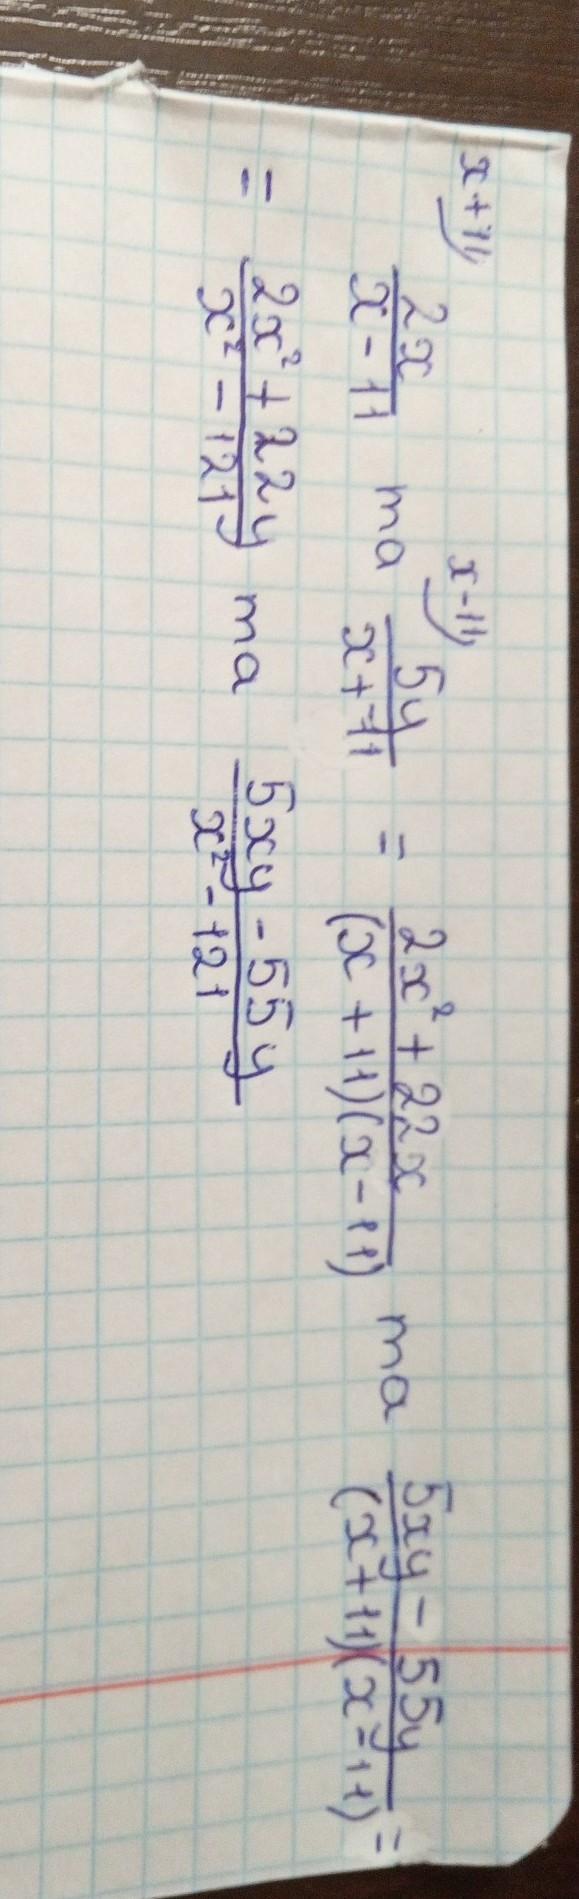 x+11) x-11)
2x/(x-11) та 5y/(x+11) = (2x²+22x)/((x+11)(x-11)) та (5xy-55y)/((x+11)(x-11)) =
= (2x²+22y)/(x²-121) та (5xy-55y)/(x²-121)